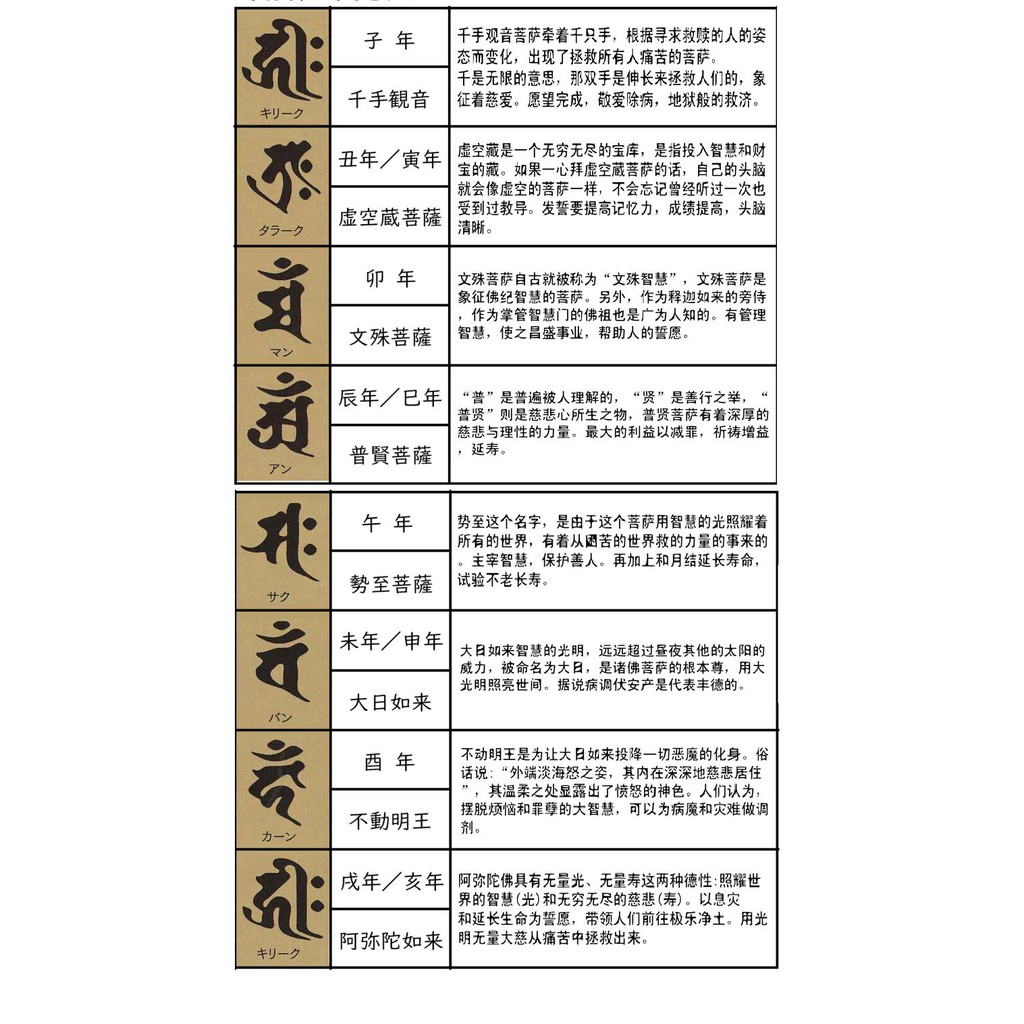 子 年
千手観音
キリーク
千手观音菩萨牵着千只手，根据寻求救赎的人的姿
态而变化，出现了拯救所有人痛苦的菩萨。
千是无限的意思，那双手是伸长来拯救人们的，象
征着慈爱。愿望完成，敬爱除病，地狱般的救济。
丑年／寅年
虚空蔵菩薩
タラーク
虚空藏是一个无穷无尽的宝库，是指投入智慧和财
宝的藏。如果一心拜虚空藏菩萨的话，自己的头脑
就会像虚空的菩萨一样，不会忘记曾经听过一次也
受到过教导。发誓要提高记忆力，成绩提高，头脑
清晰。
卯 年
文殊菩薩
マン
文殊菩萨自古就被称为“文殊智慧”，文殊菩萨是
象征佛纪智慧的菩萨。另外，作为释迦如来的旁侍
，作为掌管智慧门的佛祖也是广为人知的。有管理
智慧，使之昌盛事业，帮助人的誓愿。
辰年／巳年
普賢菩薩
アン
“普”是普遍被人理解的，“贤”是善行之举，“
普贤”则是慈悲心所生之物，普贤菩萨有着深厚的
慈悲与理性的力量。最大的利益以减罪，祈祷增益
，延寿。
午 年
勢至菩薩
サク
势至这个名字，是由于这个菩萨用智慧的光照耀着
所有的世界，有着从困苦的世界救的力量的事来的
。主宰智慧，保护善人。再加上和月结延长寿命，
试验不老长寿。
未年／申年
大日如来
バン
大日如来智慧的光明，远远超过昼夜其他的太阳的
威力，被命名为大日，是诸佛菩萨的根本尊，用大
光明照亮世间。据说病调伏安产是代表丰德的。
酉 年
不動明王
カーン
不动明王是为让大日如来投降一切恶魔的化身。俗
话说：“外端淡海怒之姿，其内在深深地慈悲居住
”，其温柔之处显露出了愤怒的神色。人们认为，
摆脱烦恼和罪孽的大智慧，可以为病魔和灾难做调
剂。
戌年／亥年
阿弥陀如来
キリーク
阿弥陀佛具有无量光、无量寿这两种德性:照耀世
界的智慧(光)和无穷无尽的慈悲(寿)。以息灾
和延长生命为誓愿，带领人们前往极乐净土。用光
明无量大慈从痛苦中拯救出来。